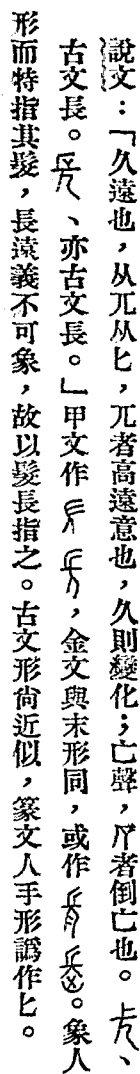 說文：「久遠也，从兀从匕，兀者高遠意也，久則變化；亡聲，𠂆者倒亡也。、
古文長。、亦古文長。」甲文作，金文與末形同，或作。象人
形而特指其髮，長遠義不可象，故以髮長指之。古文形尙近似，篆文人手形譌作匕。